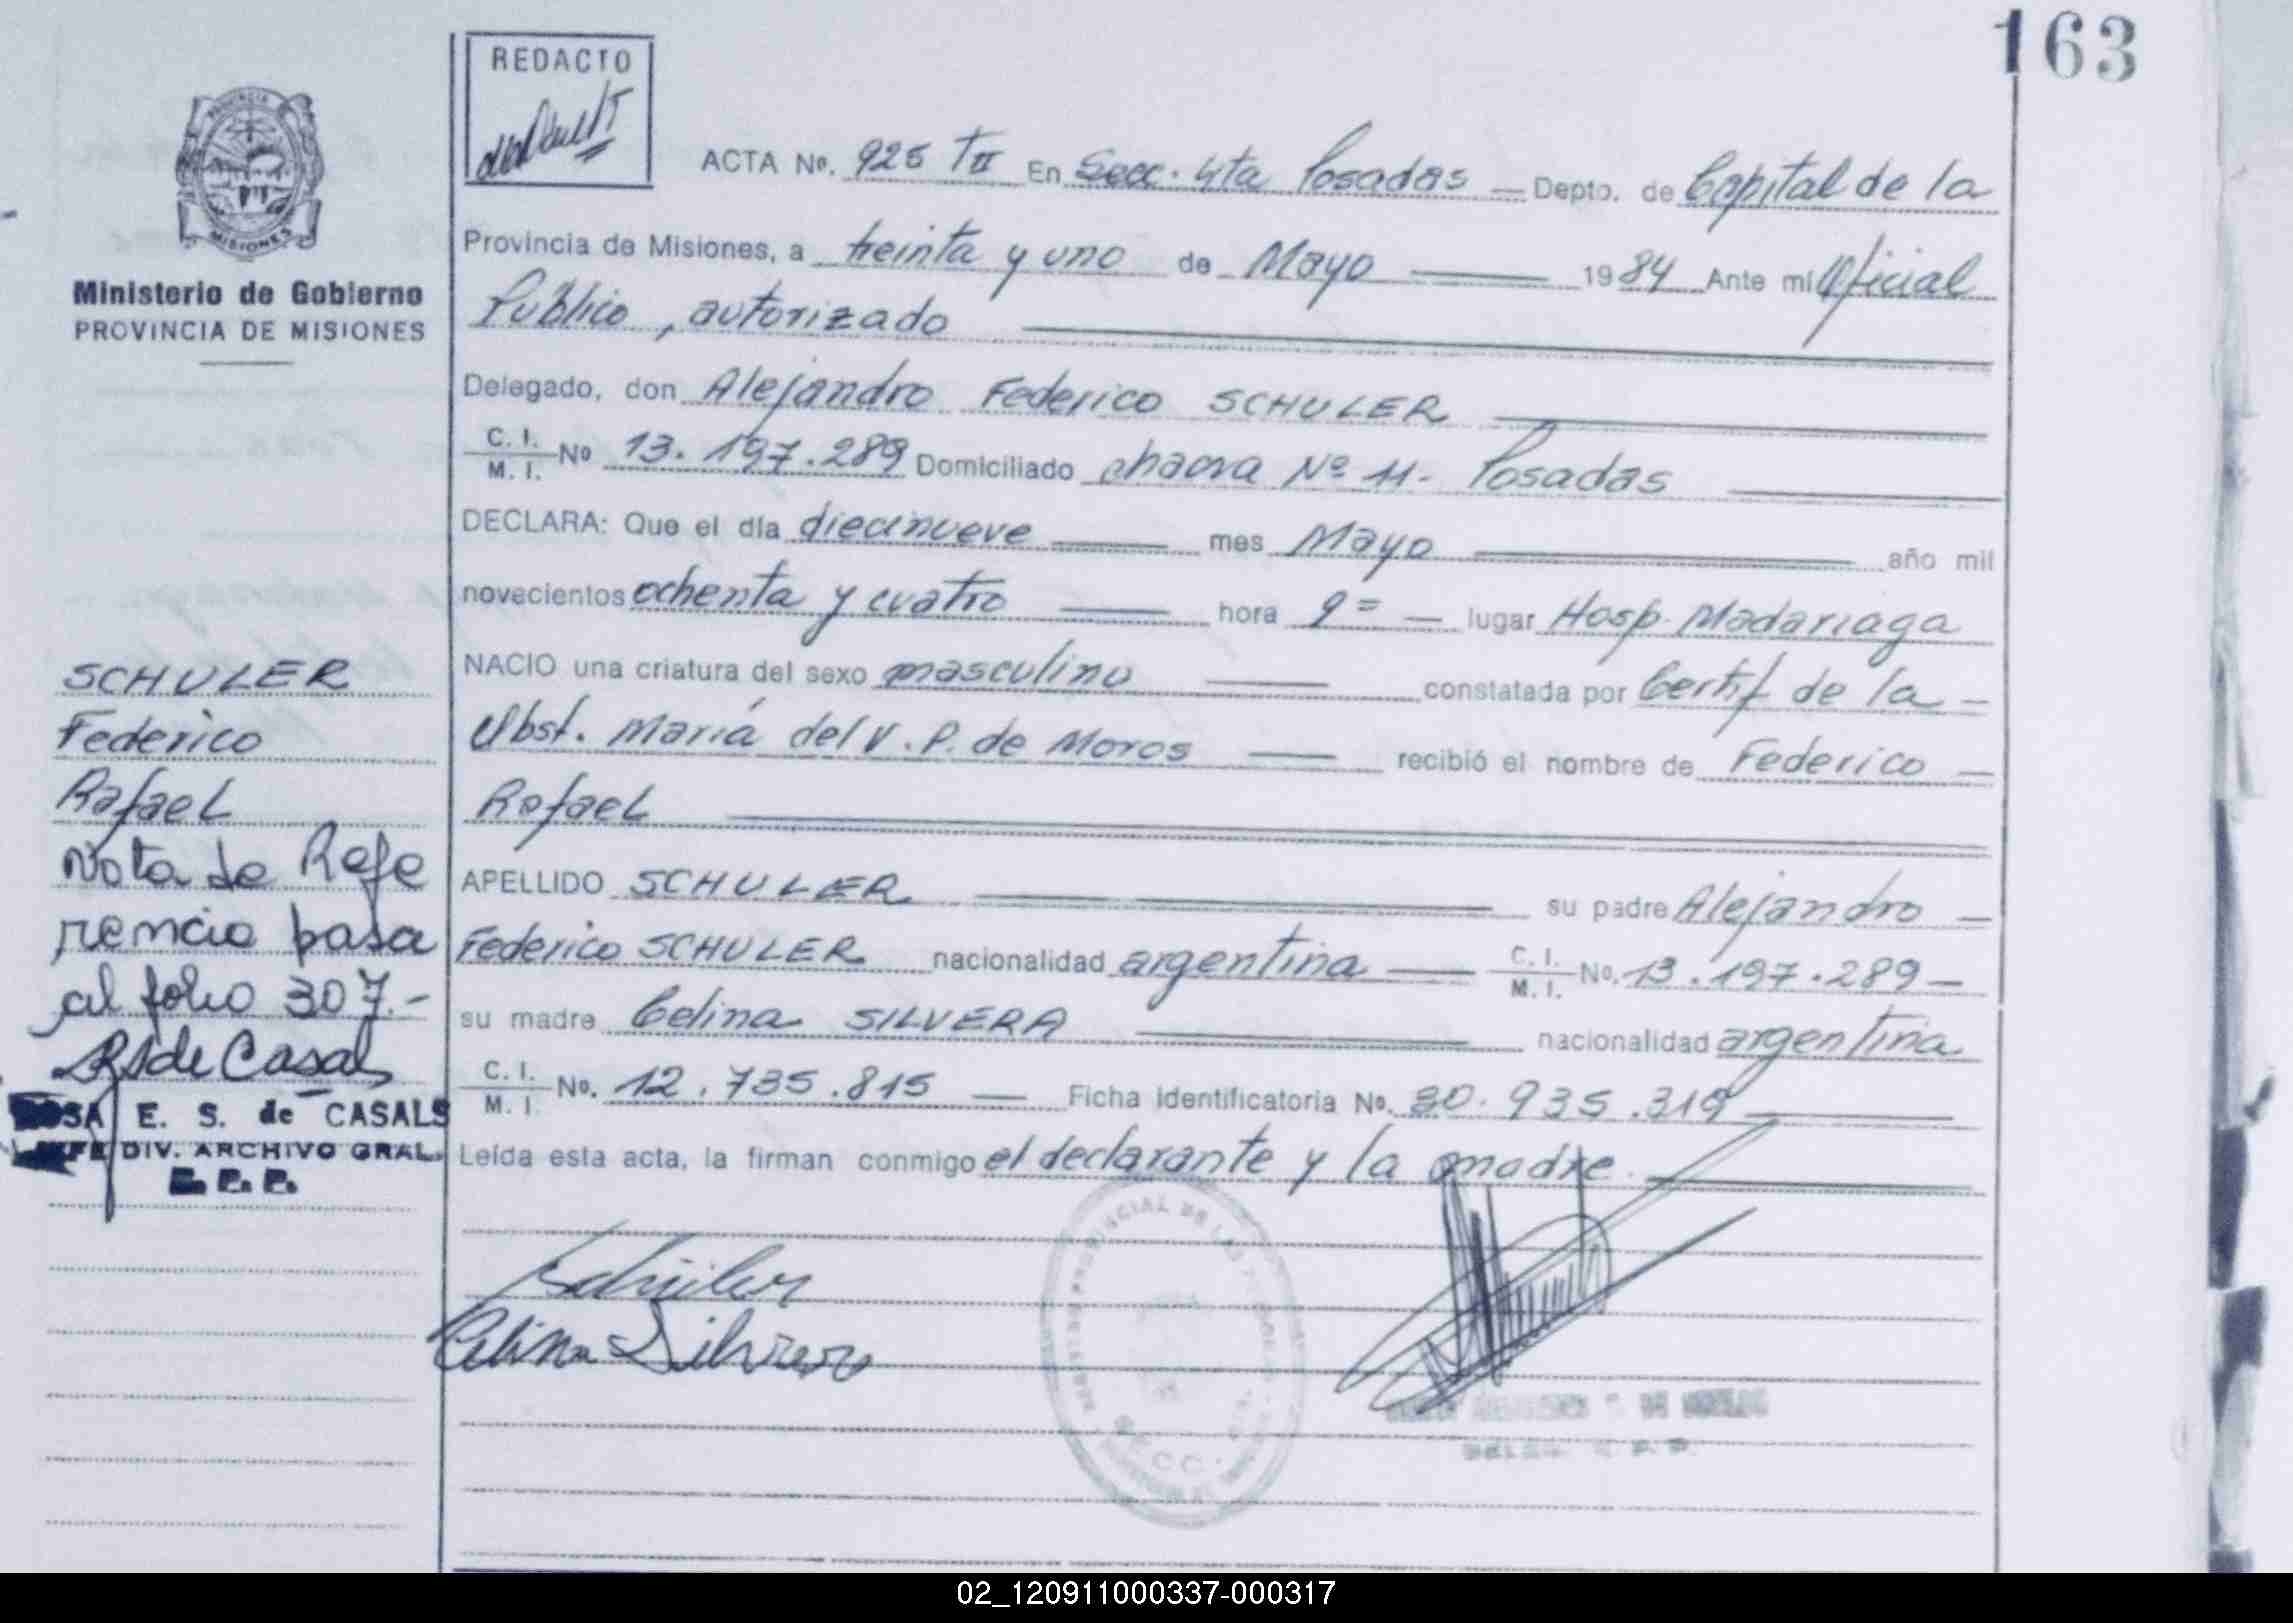 163
REDACTO
PROVINCIA DE
MISIONES
Ministerio de Gobierno
PROVINCIA DE MISIONES
ACTA Nº. 925 TII En Secc. 4ta Posadas — Depto. de Capital de la
Provincia de Misiones, a treinta y uno de Mayo — 1984 Ante mí Oficial
Público, autorizado
Delegado, don Alejandro Federico SCHULER
C. I. / M. I. Nº 13.197.289 Domiciliado chacra Nº 11- Posadas
DECLARA: Que el día diecinueve — mes Mayo — año mil
novecientos ochenta y cuatro — hora 9= — lugar Hosp. Madariaga
NACIO una criatura del sexo masculino — constatada por Certif de la —
Obst. María del V. P. de Moros — recibió el nombre de Federico —
Rafael
APELLIDO SCHULER — su padre Alejandro —
Federico SCHULER nacionalidad argentina — C. I. / M. I. No. 13.197.289 —
su madre Celina SILVERA — nacionalidad argentina
C. I. / M. I. No. 12.735.815 — Ficha Identificatoria No. 30.935.319
Leída esta acta, la firman conmigo el declarante y la madre.
Schuler
Celina Silvera
SCHULER
Federico
Rafael
Nota de Refe
rencia pasa
al folio 307.-
RSde Casals
ROSA E. S. de CASALS
JEFE DIV. ARCHIVO GRAL.
R. P. P.
02_120911000337-000317